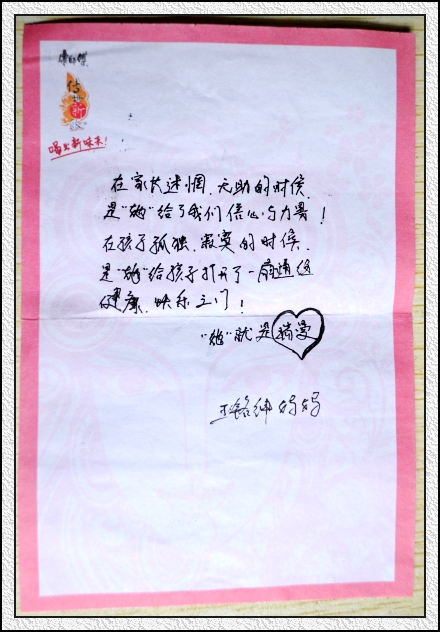 康师傅
传新
喝出新味来!
在家长迷惘、无助的时候,
是“她”给了我们信心与力量!
在孩子孤独、寂寞的时候,
是“她”给孩子打开了一扇通往
健康、快乐之门!
“她”就是瑞曼
王铭绅妈妈